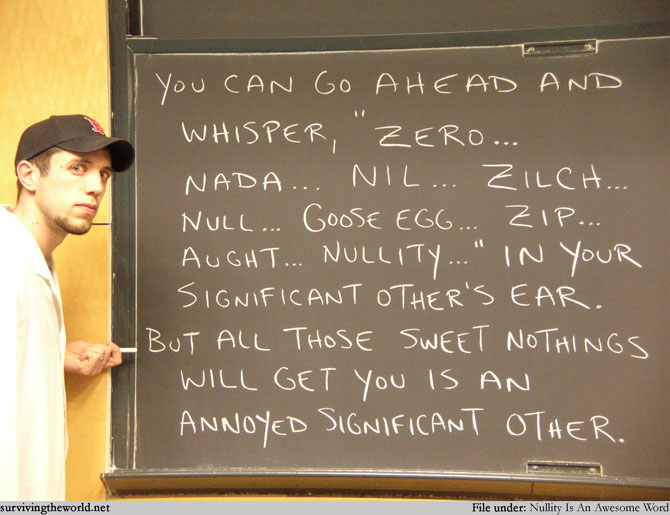 YOU CAN GO AHEAD AND
WHISPER, "ZERO...
NADA... NIL... ZILCH...
NULL... GOOSE EGG... ZIP...
AUGHT... NULLITY..." IN YOUR
SIGNIFICANT OTHER'S EAR.
BUT ALL THOSE SWEET NOTHINGS
WILL GET YOU IS AN
ANNOYED SIGNIFICANT OTHER.
survivingtheworld.net File under: Nullity Is An Awesome Word